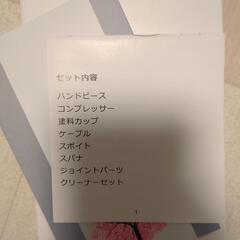 セット内容
ハンドピース
コンプレッサー
塗料カップ
ケーブル
スポイト
スパナ
ジョイントパーツ
クリーナーセット
1